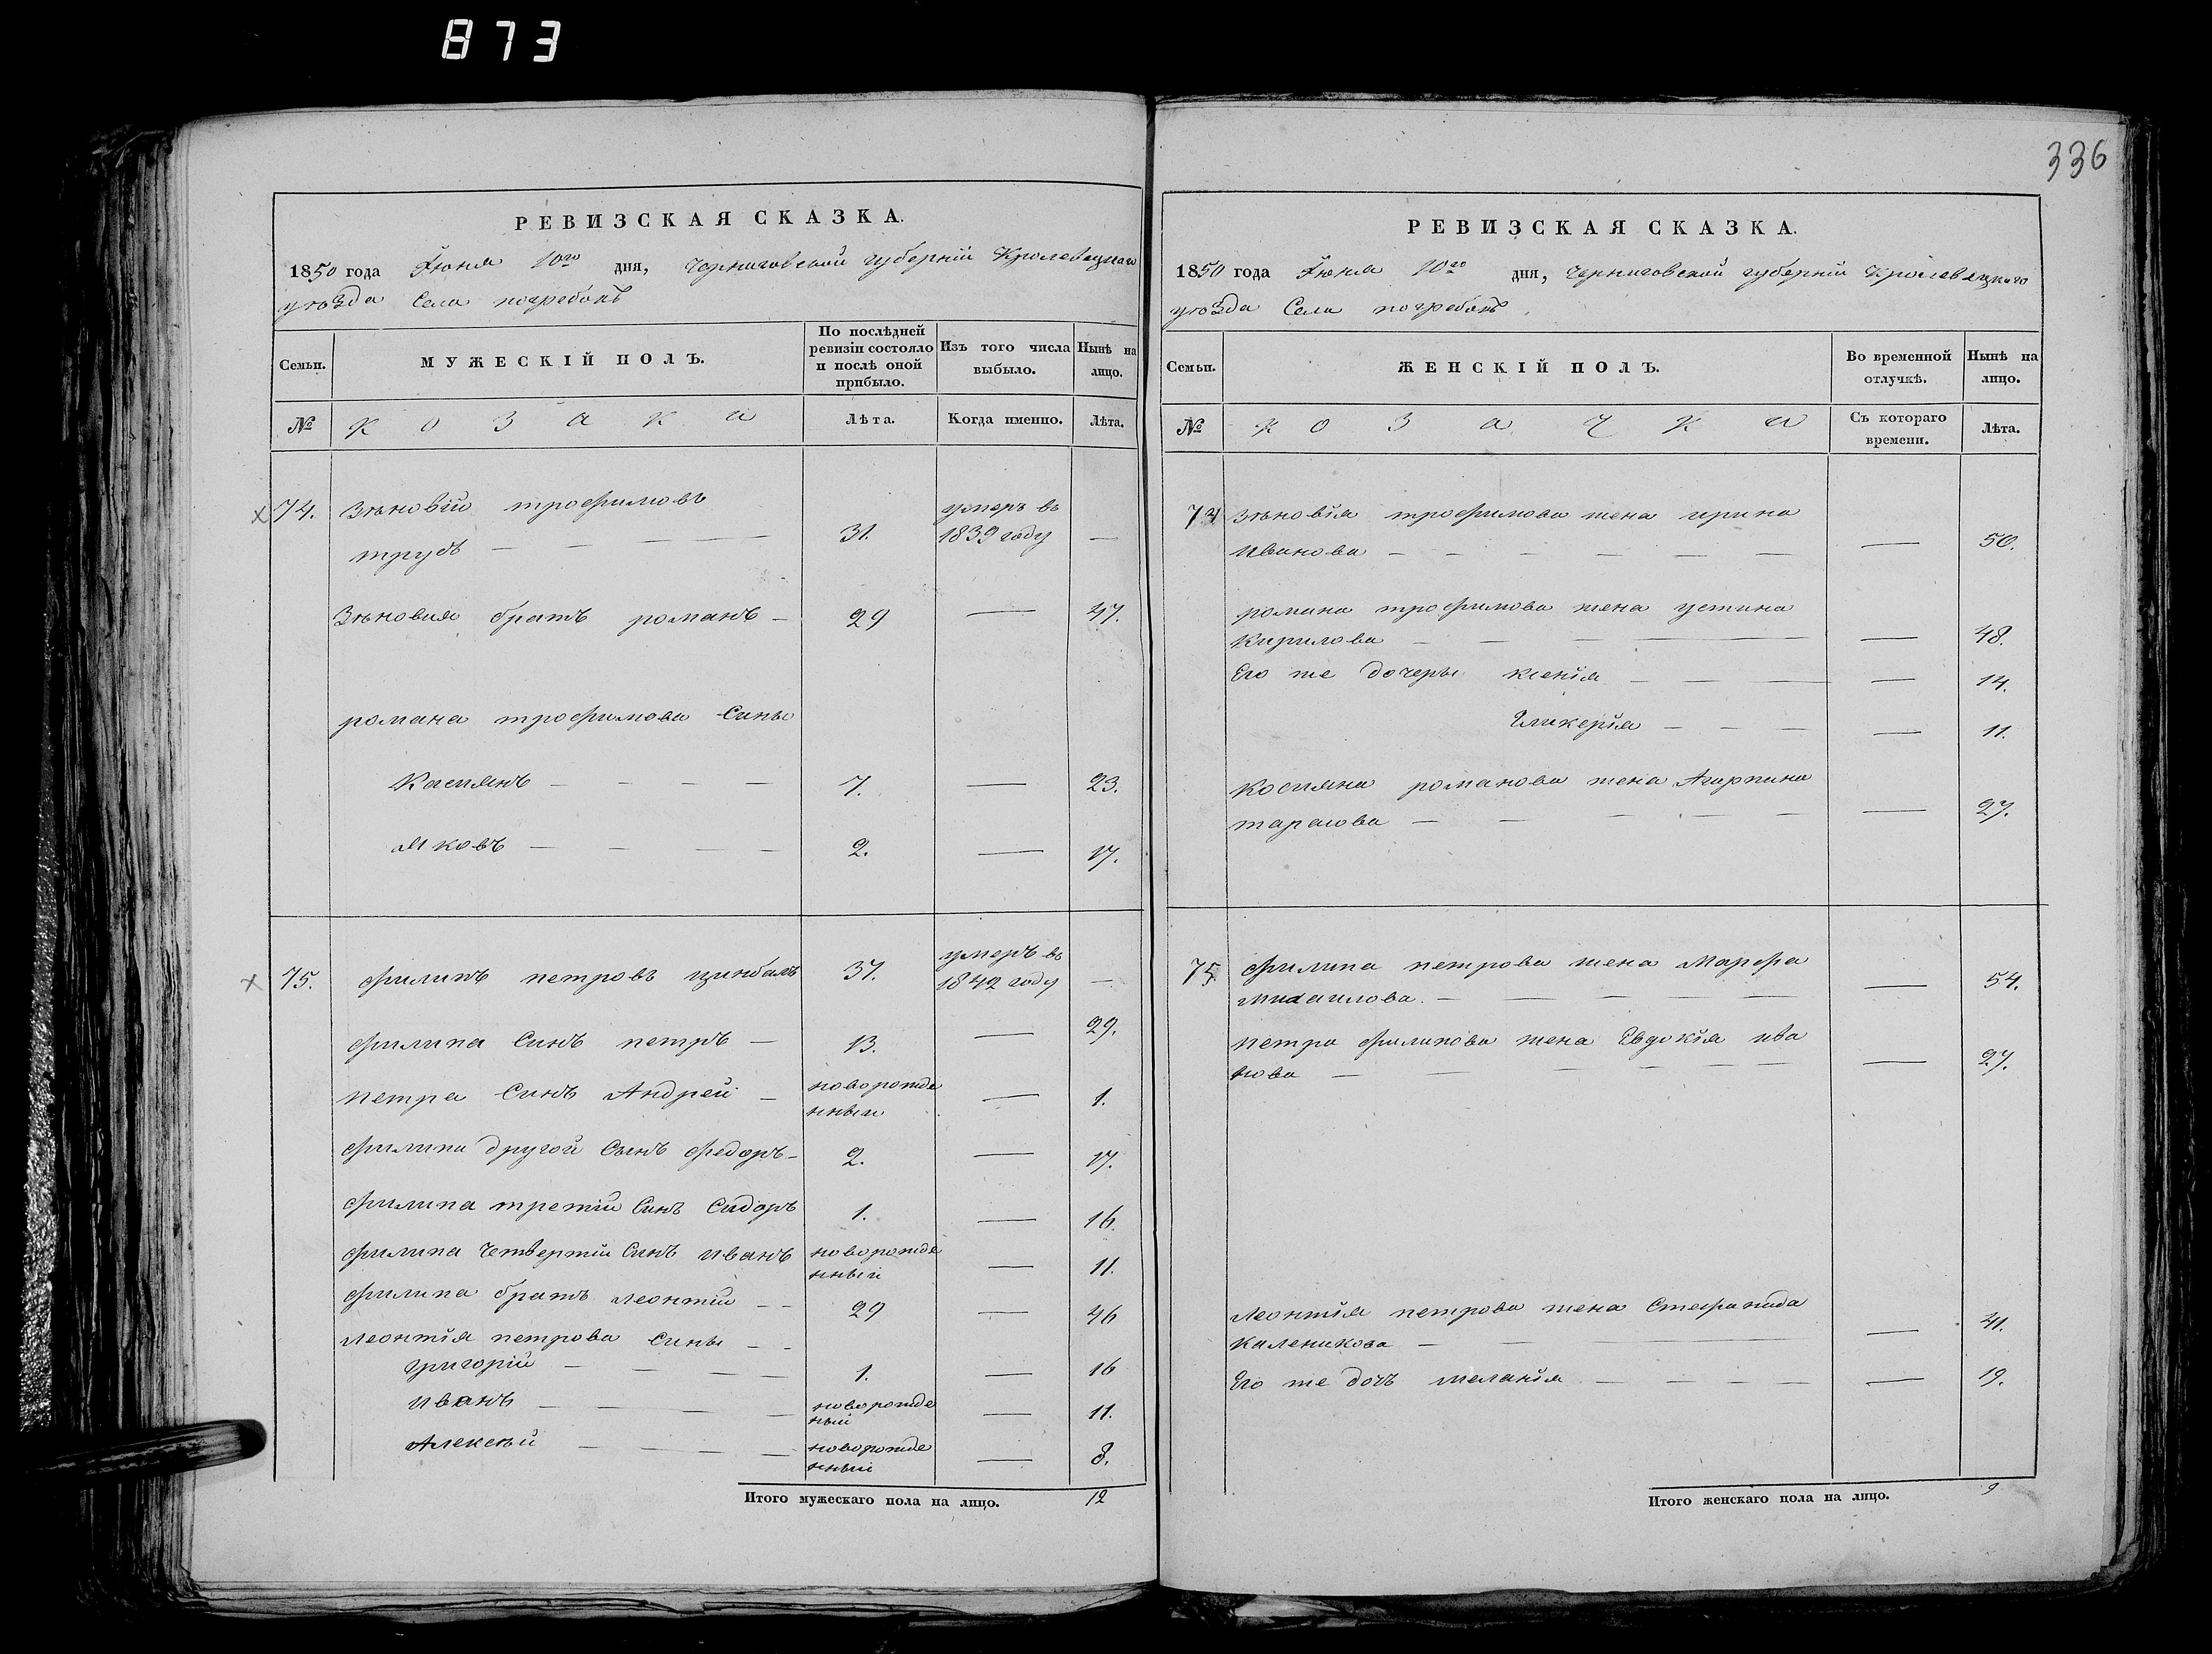 873
336
РЕВИЗСКАЯ СКАЗКА.
1850 года Іюня 10го дня, Черниговской губерніи Кролевецкаго
уѣзда Села погребокъ
Семьи. МУЖЕСКІЙ ПОЛЪ. По послѣдней ревизіи состояло и послѣ оной прибыло. Изъ того числа выбыло. Нынѣ на лицо.
№ козака Лѣта. Когда именно. Лѣта.
74. Зѣновій трофимовъ умеръ въ
трубъ — 31. 1839 году —
Зѣновия братъ романъ — 29 — 47.
романа трофимова Сины
Касиянъ — 7. — 23.
Яковъ — 2. — 17.
75. филипъ петровъ цинбалъ 37. умеръ въ 1842 году —
филипа Синъ петръ — 13. — 29.
петра Синъ Андрей — новорожде
нный — 1.
филипа другой Сынъ федоръ — 2. — 17.
филипа третий Синъ Сидоръ 1. — 16.
филипа четвертій Синъ иванъ новорожде
нный — 11.
филипа братъ леонтий — 29 — 46
леонтія петрова Сины —
григорій — 1. — 16
иванъ — новорожде
ный — 11.
Алексѣй — новорожде
нный — 8.
Итого мужескаго пола на лицо. 12
РЕВИЗСКАЯ СКАЗКА.
1850 года Іюня 10го дня, Черниговской губерніи Кролевецкаго
уѣзда Села погребокъ
Семьи. ЖЕНСКІЙ ПОЛЪ. Во временной отлучкѣ. Нынѣ на лицо.
№ козачки Съ котораго времени. Лѣта.
74 Зѣновія трофимова жена ирина
Иванова — — 50.
романа трофимова жена устина
Кирилова — — 48.
Его же дочеры ксенія — — 14.
Гликерія — — 11.
Косияна романова жена Агарпина
тарасова — — 27.
75. филипа петрова жена Марфа
михаилова. — — 54.
петра филипова жена Евдокія ива
нова — — 27.
леонтія петрова жена Стефанида
Каленикова — — 41.
Его же дочъ меланія — — 19.
Итого женскаго пола на лицо. 9